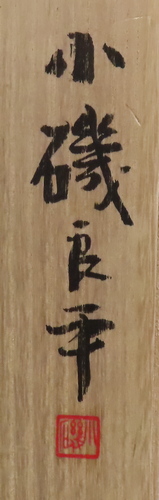 小磯良平